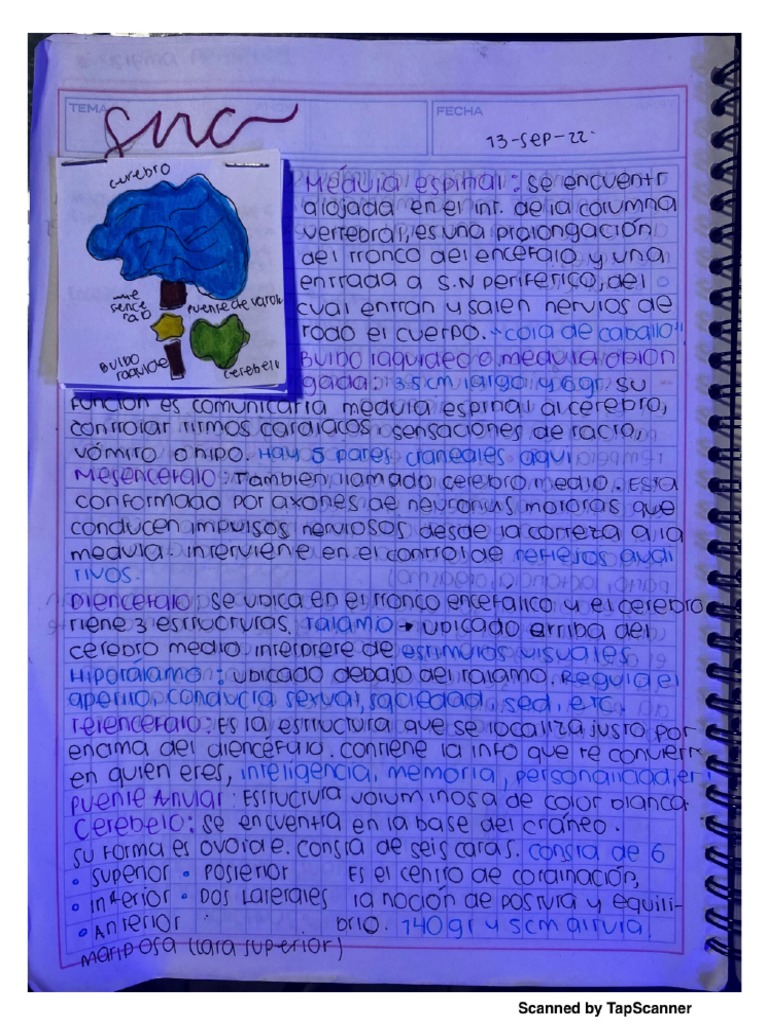 TEMA
SNC
FECHA
13-sep-22.
cerebro
me
sence
fa o
Puente de varoli
Bulbo
raquideo
cerebelo
Médula espinal: se encuentr
alojada en el int. de la columna
vertebral, es una prolongación
del tronco del encefalo y una
entrada a S.N periferico, del
cual entran y salen nervios de
todo el cuerpo. "cola de caballo"
Bulbo raquideo o medula oblon
gada: 3.5 cm largo y 6 gr. su
función es comunicar la medula espinal al cerebro,
controlar ritmos cardiacos sensaciones de tacto,
vómito o hipo. Hay 5 pares craneales aqui
Mesencefalo: También llamado cerebro medio. Esta
conformado por axones de neuronas motoras que
conducen impulsos nerviosos desde la corteza a la
medula. interviene en el control de reflejos audi
tivos.
Diencefalo: se ubica en el tronco encefalico y el cerebro
tiene 3 estructuras. Talamo → ubicado arriba del
cerebro medio interprere de estimulos visuales
Hipotálamo: ubicado debajo del talamo. Regula el
apetito, conducta sexual, saciedad, sed, etc.
Telencefalo: Es la estructura que se localiza justo por
encima del diencéfalo. contiene la info que te convierr
en quien eres, inteligencia, memoria, personalidad, er
Puente Anular: Estructura voluminosa de color blanca
Cerebelo: se encuentra en la base del cráneo.
su forma es ovoide. consta de seis caras. consta de 6
• Superior • Posterior Es el centro de cordinación,
• Inferior • Dos Laterales la noción de postura y equili-
• Anterior brio. 140 gr y 5cm altura.
mariposa (cara superior)
Scanned by TapScanner